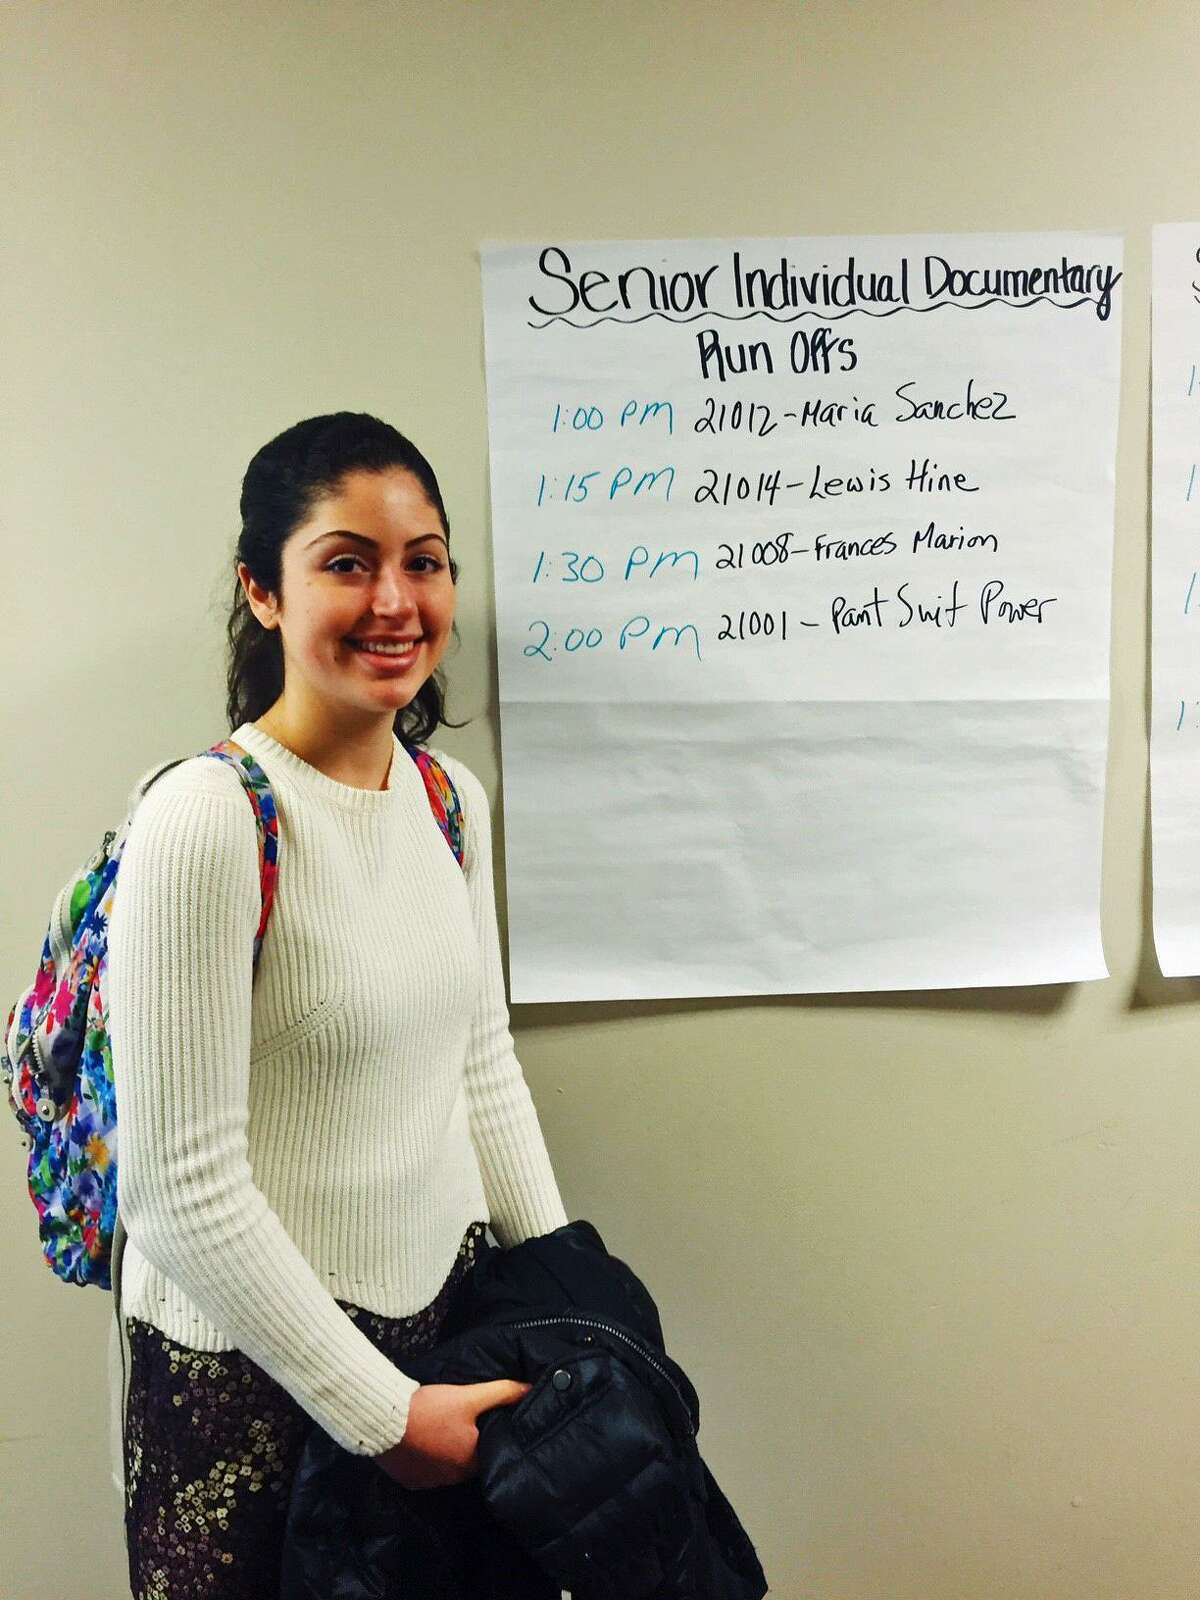 Senior Individual Documentary
Run Offs
1:00 PM 21012-Maria Sanchez
1:15 PM 21014-Lewis Hine
1:30 PM 21008-Frances Marion
2:00 PM 21001-Pant Suit Power